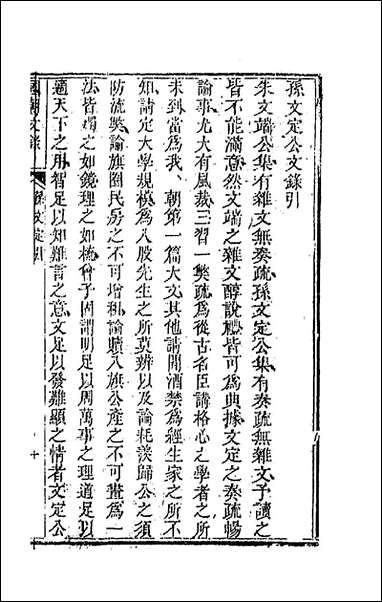 孫文定公文錄引
朱文端公集有雜文無奏疏孫文定公集有奏疏無雜文予讀之
皆不能滿意然文端之雜文醇說禮皆可為典據文定之奏疏暢
論事尤大有風裁三習一獘疏為從古名臣講格心之學者之所
未到當為我 朝第一篇大文其他請開酒禁為經生家之所不
知請定大學規模為八股先生之所莫辨以及論耗羨歸公之須
防流獘論旗圈民房之不可增租論贖入旗公產之不可置為一
法皆燭之如鏡理之如梳曾子固謂明足以周萬事之理道足以
適天下之用智足以知難言之意文足以發難顯之情者文定公
國朝文錄 孫文定引 一